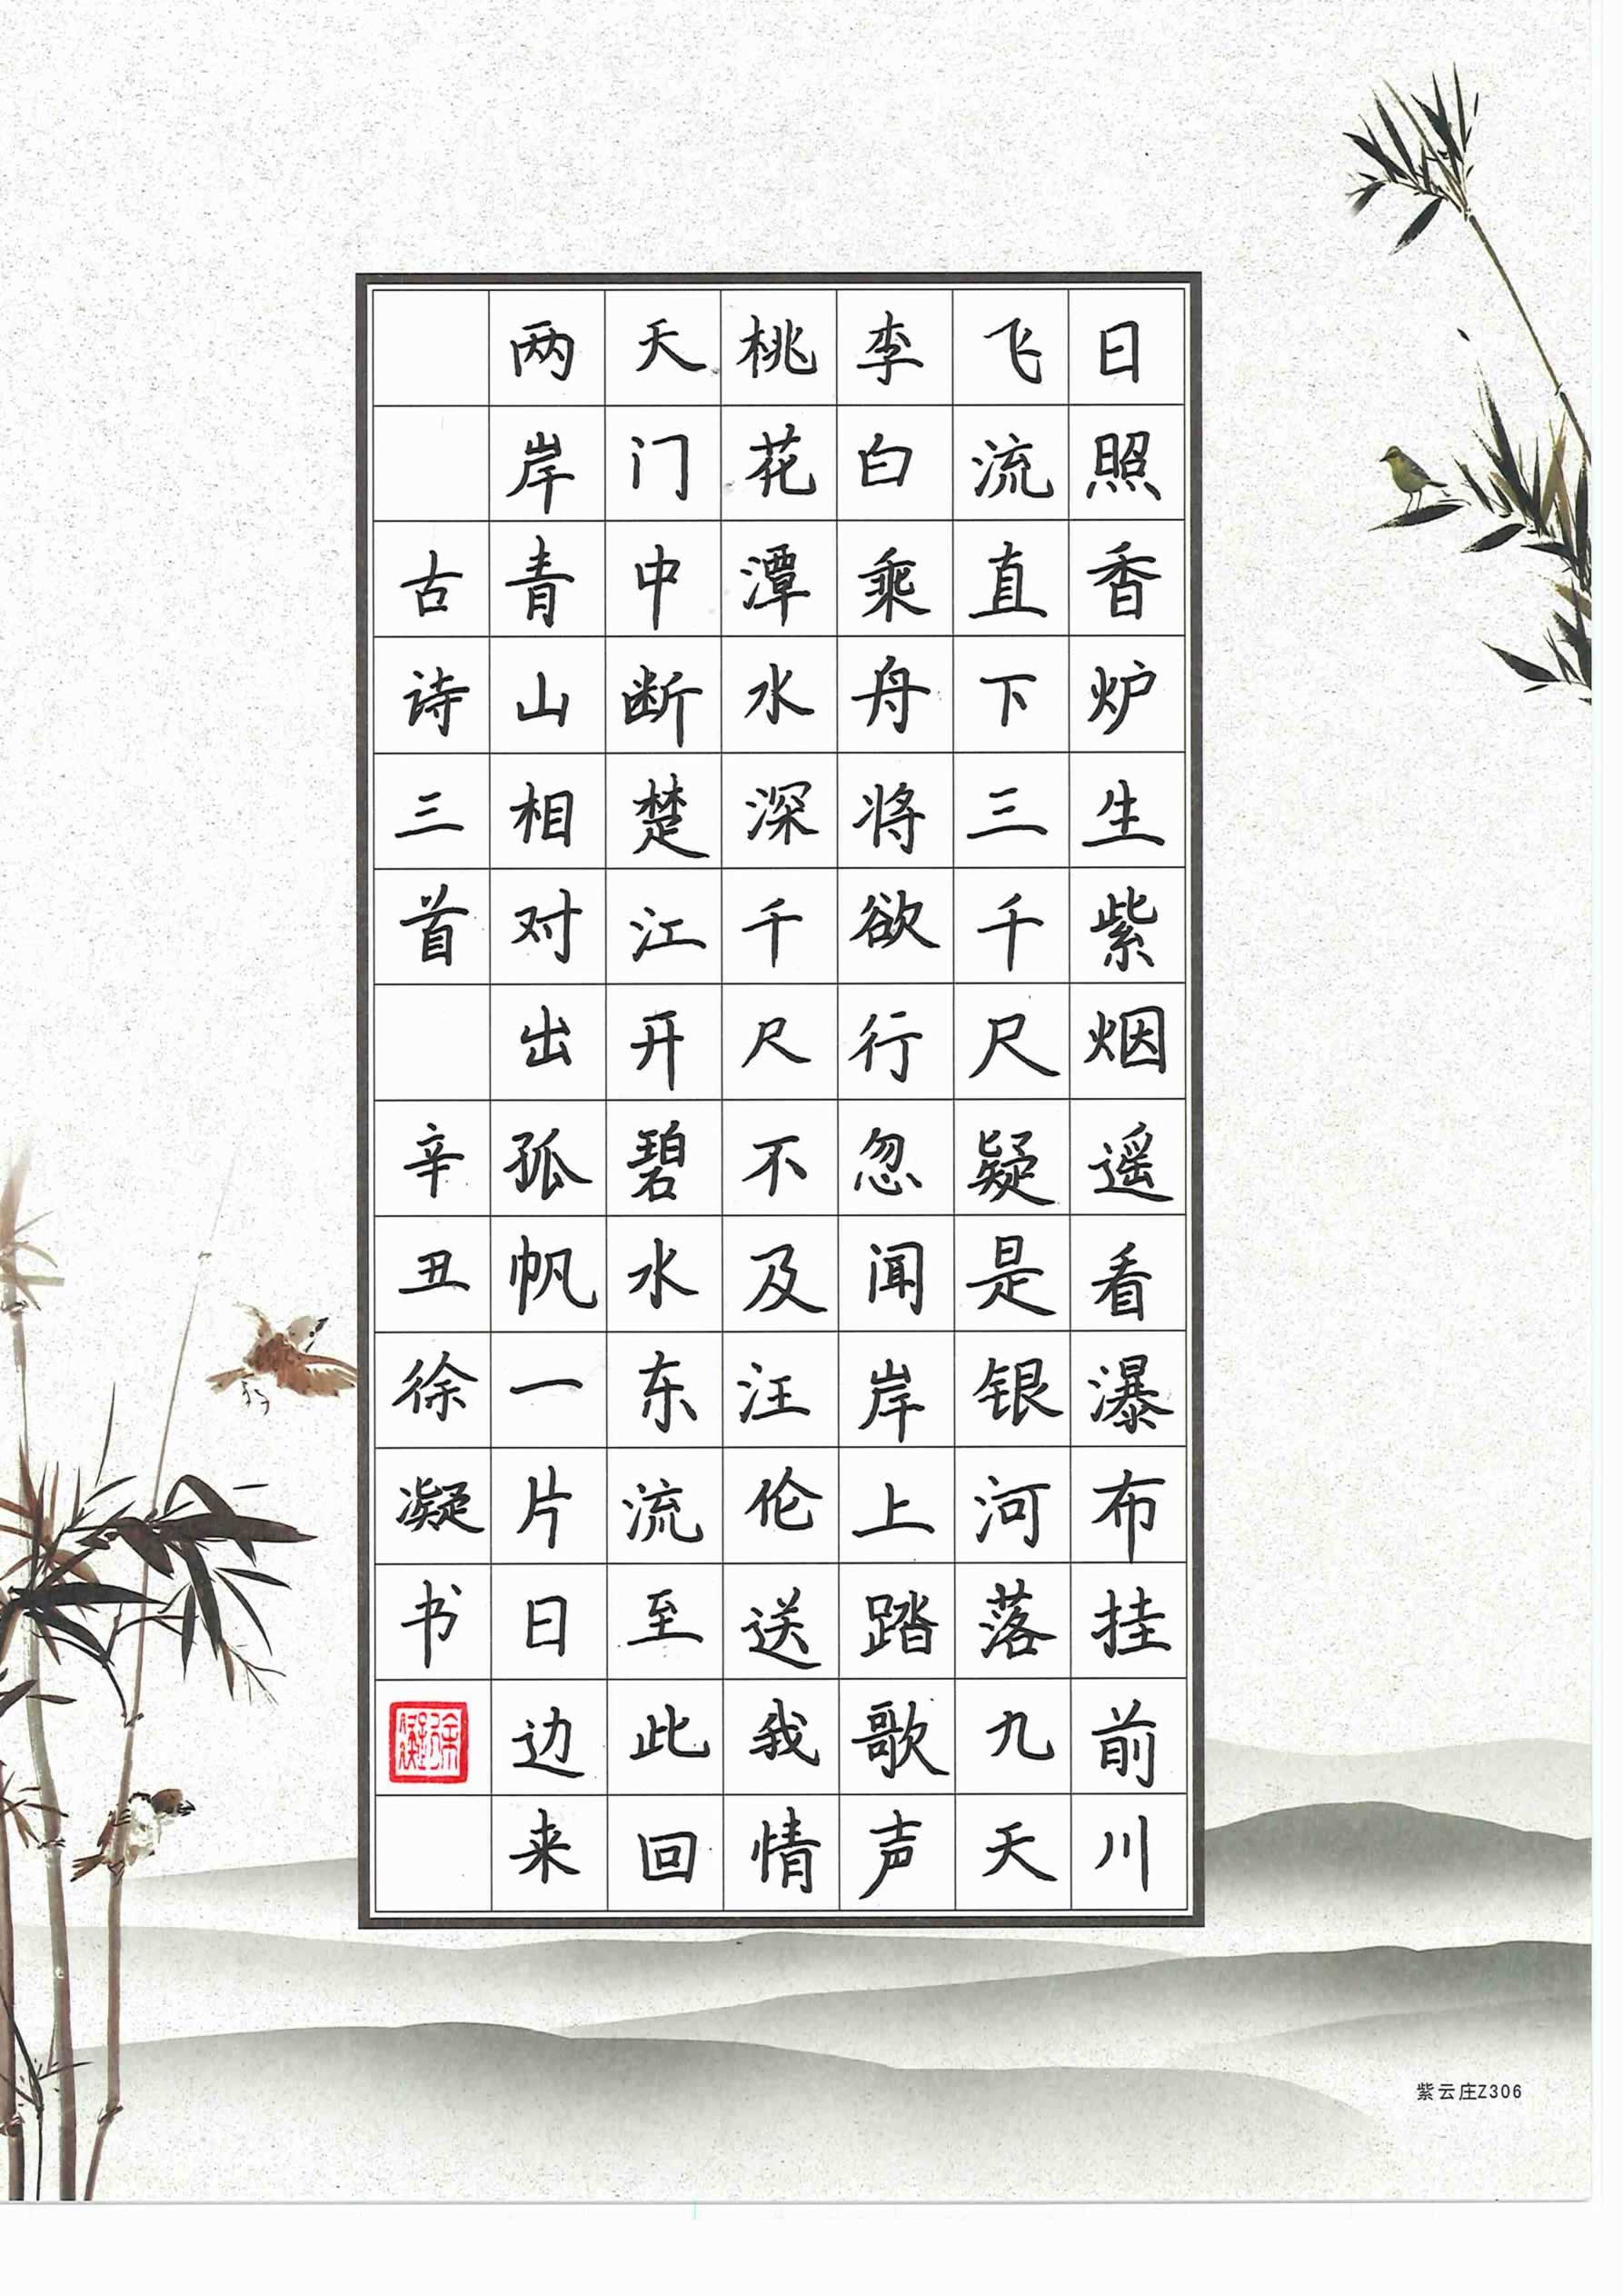 日照香炉生紫烟遥看瀑布挂前川
飞流直下三千尺疑是银河落九天
李白乘舟将欲行忽闻岸上踏歌声
桃花潭水深千尺不及汪伦送我情
天门中断楚江开碧水东流至此回
两岸青山相对出孤帆一片日边来
古诗三首 辛丑徐凝书
紫云庄Z306